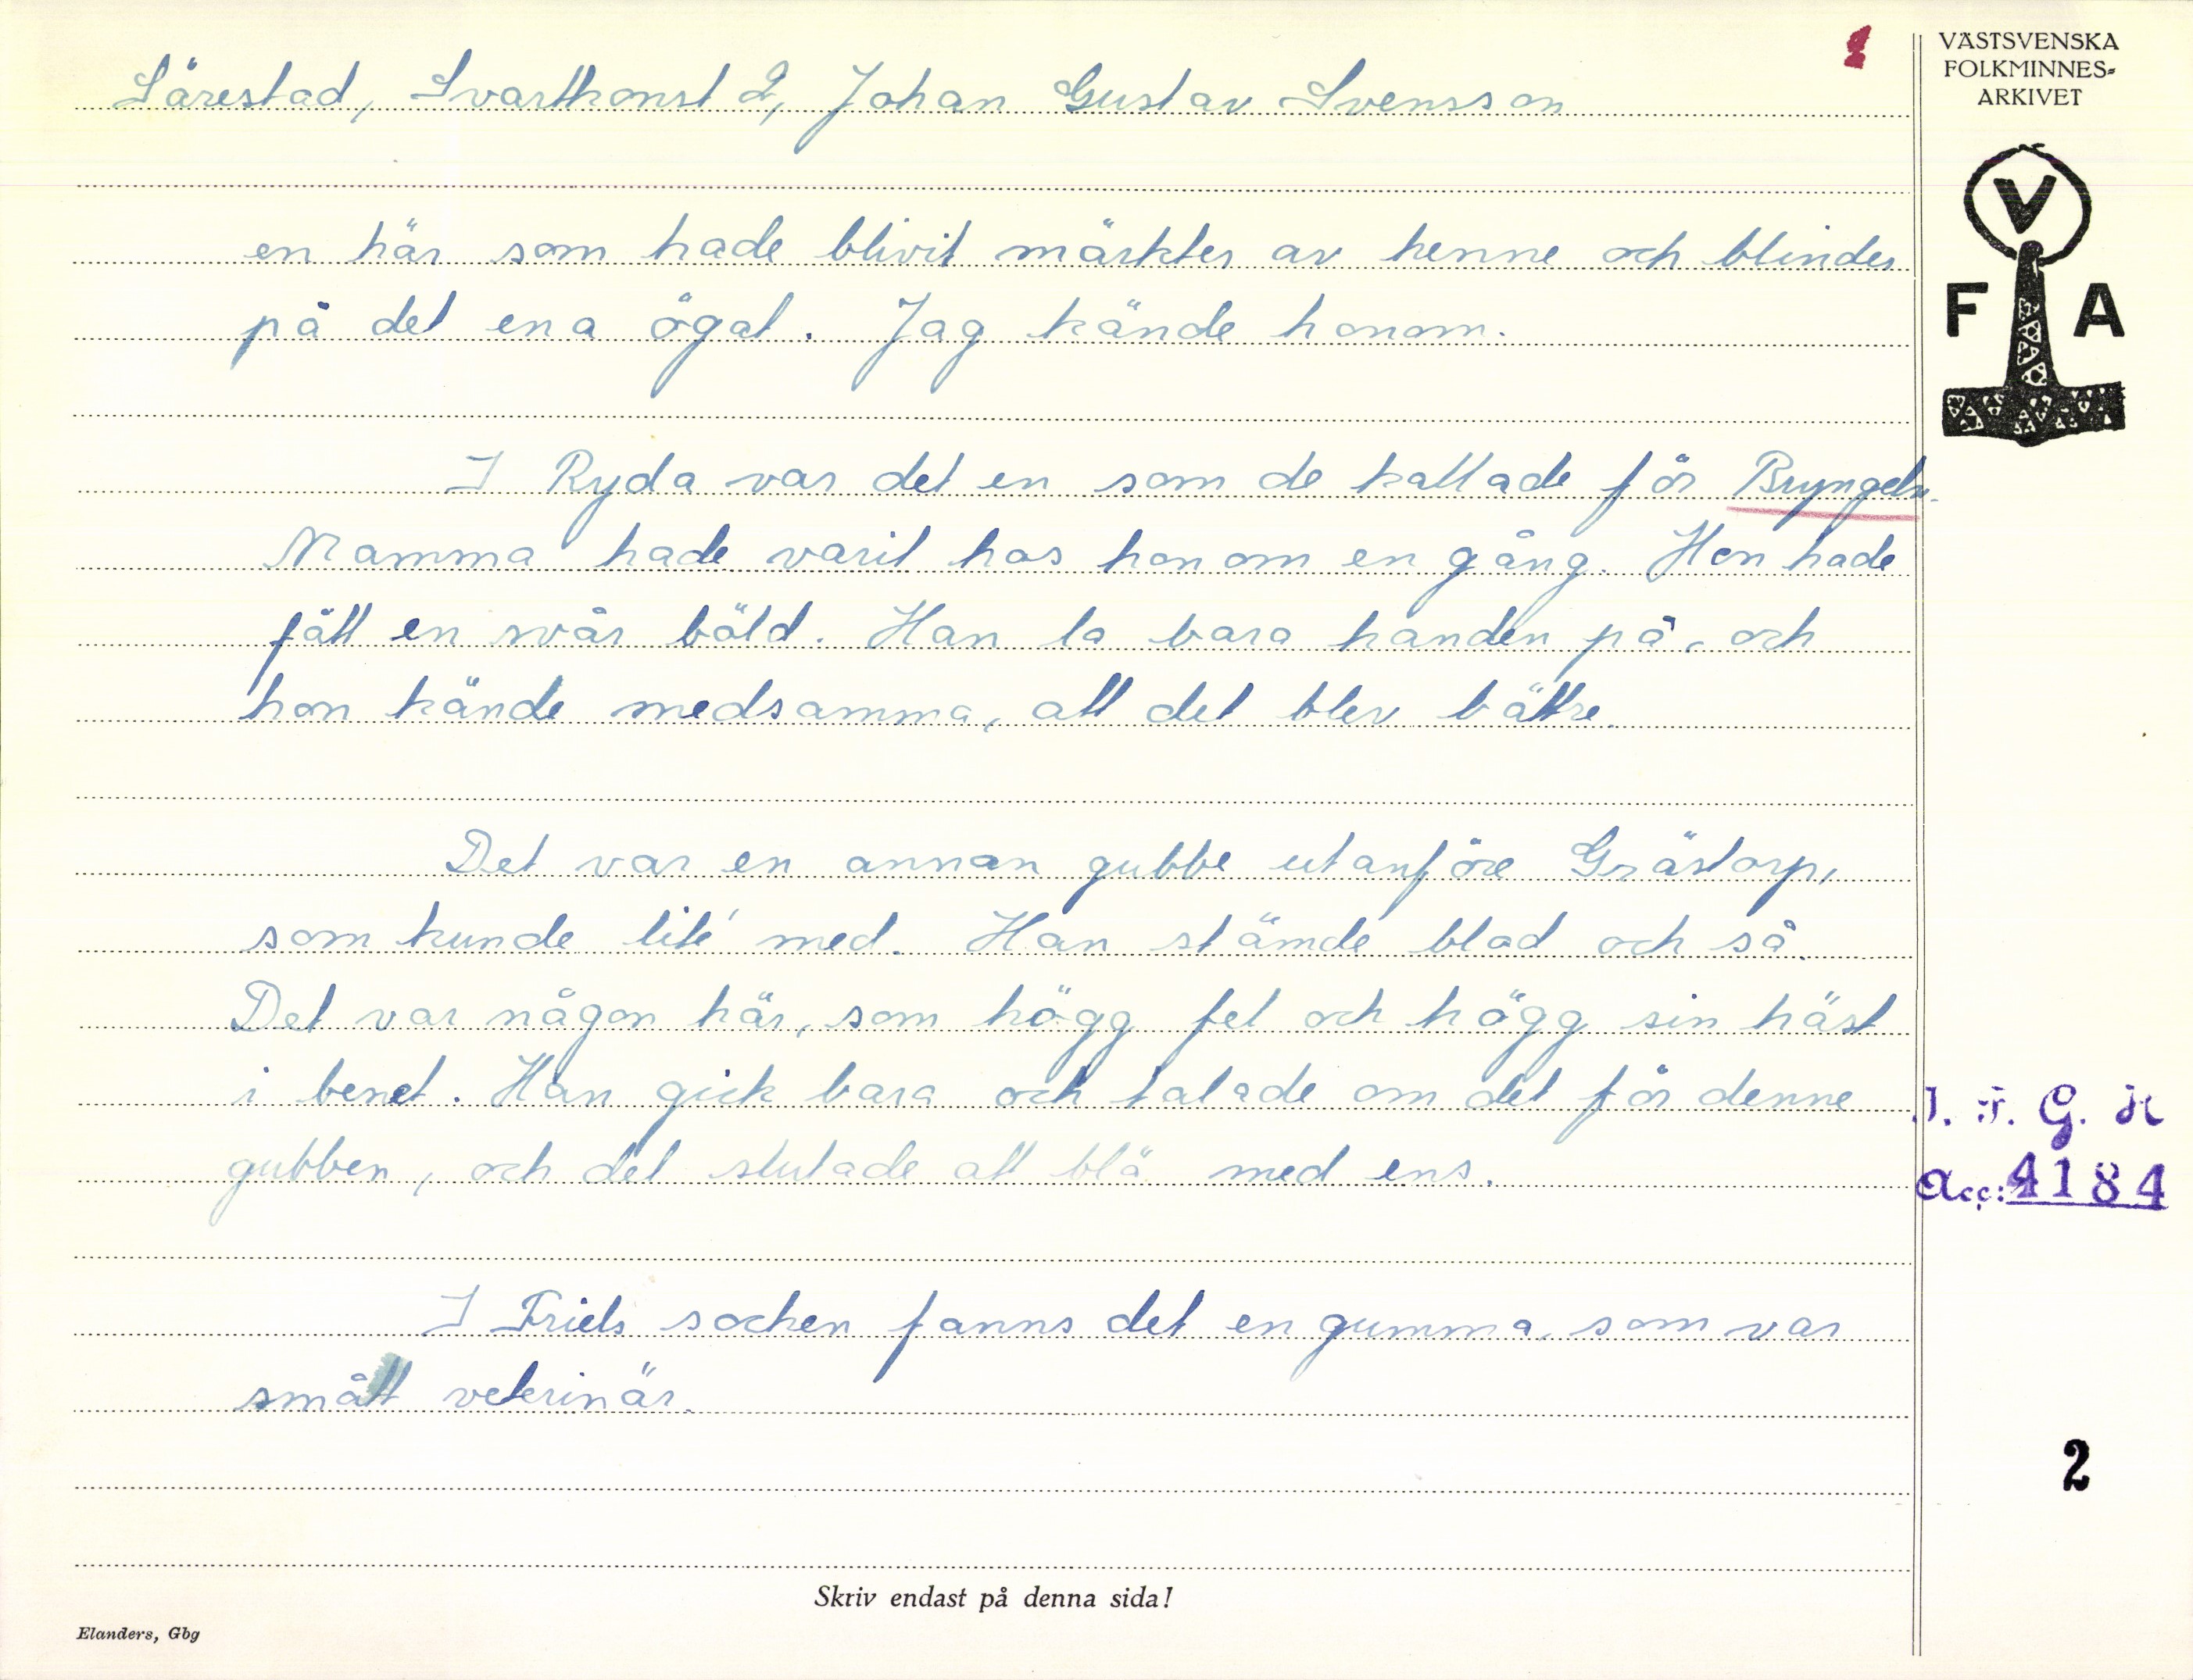 Särestad, Svartkonst 2, Johan Gustav Svensson
en här som hade blivit märkter av henne och blinder
på det ena ögat. Jag kände honom.
I Ryda var det en som de kallade för Bryngeln.
Mamma hade varit hos honom en gång. Hon hade
fått en svår böld. Han la bara handen på, och
hon kände medsamma, att det blev bättre.
Det var en annan gubbe utanföre Grästorp,
som kunde lite' med. Han stämde blod och så.
Det var någon här, som högg fel och högg sin häst
i benet. Han gick bara och talade om det för denne
gubben, och det slutade att blö med ens.
I Friels socken fanns det en gumma, som var
smått veterinär.
VÄSTSVENSKA
FOLKMINNES-
ARKIVET
V
F A
I. F. G. H
Acc: 4184
2
Skriv endast på denna sida!
Elanders, Gbg